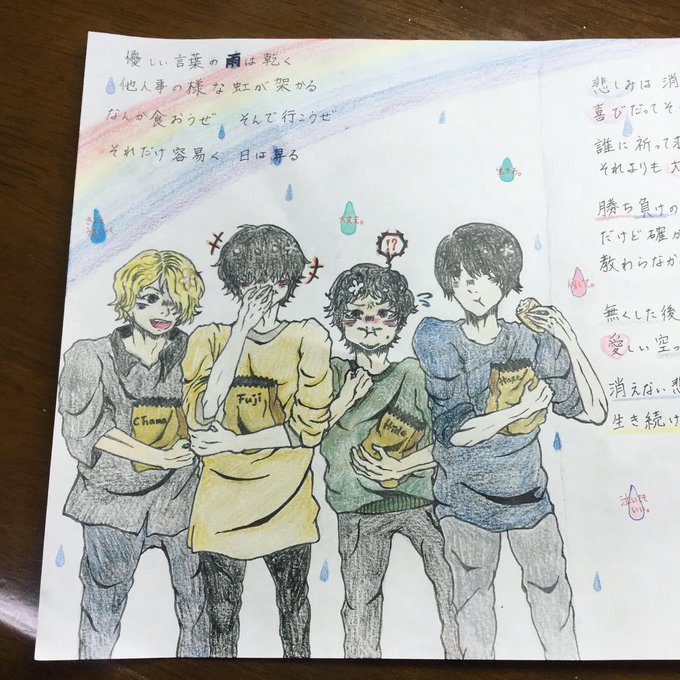 優しい言葉の雨は乾く
他人事の様な虹が架かる
なんか食おうぜ そんで行こうぜ
それだけ容易く 日は昇る
悲しみは消
喜びだってそ
誰に祈って
それよりも大
勝ち負けの
だけど確か
教わらなか
無くした後
愛しい空っ
消えない悲
生き続け
生きろ。
大丈夫。
!?
信じて。
chama
Fuji
Hide
泣いても
いい。